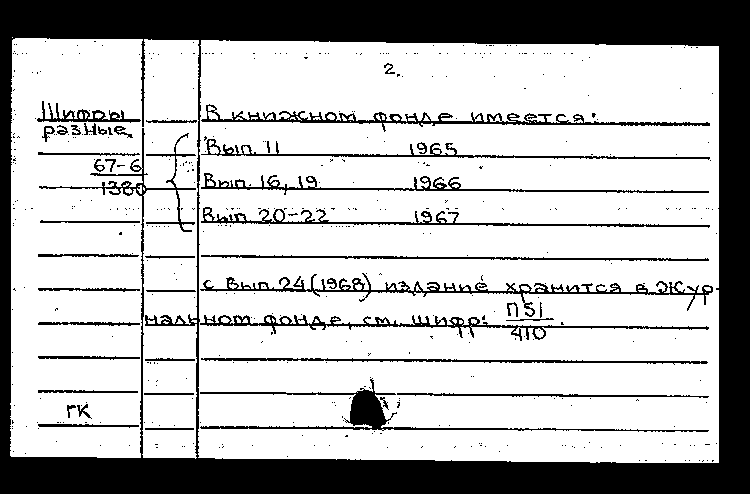 2.
Шифры
разные
В книжном фонде имеется:
Вып. 11 1965
67-6
1380
Вып. 16, 19 1966
Вып. 20-22 1967
с вып. 24 (1968) издание хранится в жур-
нальном фонде, см. шифр: П51
410.
ГК